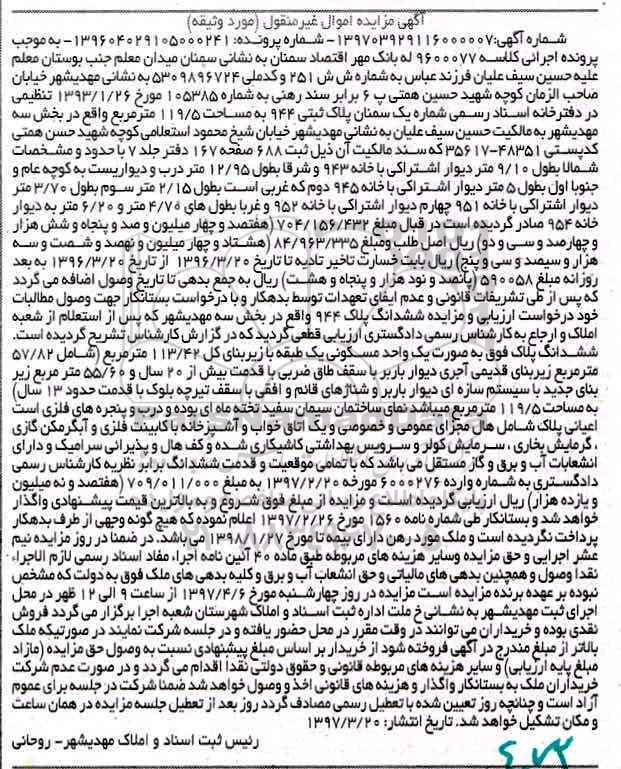 آگهی مزایده اموال غیرمنقول (مورد وثیقه)
شماره آگهی:۱۳۹۷۰۳۹۲۹۱۱۶۰۰۰۰۰۷- شماره پرونده: ۱۳۹۶۰۴۰۲۹۱۰۵۰۰۰۲۴۱- به موجب
پرونده اجرائی کلاسه ۹۶۰۰۰۷۷ له بانک مهر اقتصاد سمنان به نشانی سمنان میدان معلم جنب بوستان معلم
علیه حسین سیف علیان فرزند عباس به شماره ش ش ۲۵۱ و کدملی ۵۳۰۹۸۹۶۷۲۴ به نشانی مهدیشهر خیابان
صاحب الزمان کوچه شهید حسین همتی پ ۶ برابر سند رهنی به شماره ۱۰۵۳۸۵ مورخ ۱۳۹۳/۱/۲۶ تنظیمی
در دفترخانه اسناد رسمی شماره یک سمنان پلاک ثبتی ۹۴۴ به مساحت ۱۱۹/۵ مترمربع واقع در بخش سه
مهدیشهر به مالکیت حسین سیف علیان به نشانی مهدیشهر خیابان شیخ محمود استعلامی کوچه شهید حسن همتی
کدپستی ۴۸۳۵۱-۳۵۶۱۷ که سند مالکیت آن ذیل ثبت ۶۸۸ صفحه ۱۶۷ دفتر جلد ۷ با حدود و مشخصات
شمالا بطول ۹/۱۰ متر دیوار اشتراکی با خانه ۹۴۳ و شرقا بطول ۱۲/۹۵ متر درب و دیواریست به کوچه عام و
جنوبا اول بطول ۵ متر دیوار اشتراکی با خانه ۹۴۵ دوم که غربی است بطول ۲/۱۵ متر سوم بطول ۳/۷۰ متر
دیوار اشتراکی با خانه ۹۵۱ چهارم دیوار اشتراکی با خانه ۹۵۲ و غربا بطول های ۴/۷۵ متر و ۶/۲۰ متر به دیوار
خانه ۹۵۴ صادر گردیده است در قبال مبلغ ۷۰۴/۱۵۶/۴۳۲ (هفتصد و چهار میلیون و صد و پنجاه و شش هزار
و چهارصد و سی و دو) ریال اصل طلب ومبلغ ۸۴/۹۶۳/۳۳۵ (هشتاد و چهار میلیون و نهصد و شصت و سه
هزار و سیصد و سی و پنج) ریال بابت خسارت تاخیر تادیه تا تاریخ ۱۳۹۶/۳/۲۰ از تاریخ ۱۳۹۶/۳/۲۰ به بعد
روزانه مبلغ ۵۹۰۰۵۸ (پانصد و نود هزار و پنجاه و هشت) ریال به جمع بدهی تا تاریخ وصول اضافه می گردد
که پس از طی تشریفات قانونی و عدم ایفای تعهدات توسط بدهکار و با درخواست بستانکار جهت وصول مطالبات
خود درخواست ارزیابی و مزایده ششدانگ پلاک ۹۴۴ واقع در بخش سه مهدیشهر که پس از استعلام از شعبه
املاک و ارجاع به کارشناس رسمی دادگستری ارزیابی قطعی گردید که در گزارش کارشناس تشریح گردیده است.
ششدانگ پلاک فوق به صورت یک واحد مسکونی یک طبقه با زیربنای کل ۱۱۳/۴۲ مترمربع (شامل ۵۷/۸۲
مترمربع زیربنای قدیمی آجری دیوار باربر با سقف طاق ضربی با قدمت بیش از ۲۰ سال و ۵۵/۶۰ متر مربع زیر
بنای جدید با سیستم سازه ای دیوار باربر و شناژهای قائم و افقی با سقف تیرچه بلوک با قدمت حدود ۱۳ سال)
به مساحت ۱۱۹/۵ مترمربع میباشد نمای ساختمان سیمان سفید تخته ماه ای بوده و درب و پنجره های فلزی است
اعیانی پلاک شامل هال مجزای عمومی و خصوصی و یک اتاق خواب و آشپزخانه با کابینت فلزی و آبگرمکن گازی
، گرمایش بخاری ، سرمایش کولر و سرویس بهداشتی کاشیکاری شده و کف هال و پذیرائی سرامیک و دارای
انشعابات آب و برق و گاز مستقل می باشد که با تمامی موقعیت و قدمت ششدانگ برابر نظریه کارشناس رسمی
دادگستری به شماره وارده ۶۰۰۰۲۷۶ مورخه ۱۳۹۷/۲/۲۰ به مبلغ ۷۰۹/۰۱۱/۰۰۰ (هفتصد و نه میلیون
و یازده هزار) ریال ارزیابی گردیده است و مزایده از مبلغ فوق شروع و به بالاترین قیمت پیشنهادی واگذار
خواهد شد و بستانکار طی شماره نامه ۵۶۰ مورخ ۱۳۹۷/۲/۲۶ اعلام نموده که هیچ گونه وجهی از طرف بدهکار
پرداخت نگردیده است و ملک مورد رهن دارای بیمه تا مورخ ۱۳۹۸/۱/۲۷ می باشد. در ضمنا در روز مزایده نیم
عشر اجرایی و حق مزایده وسایر هزینه های مربوطه طبق ماده ۴۰ آئین نامه اجراء مفاد اسناد رسمی لازم الاجراء
نقدا وصول و همچنین بدهی های مالیاتی و حق انشعاب آب و برق و کلیه بدهی های ملک فوق به دولت که مشخص
نبوده بر عهده برنده مزایده است مزایده در روز چهارشنبه مورخ ۱۳۹۷/۴/۶ از ساعت ۹ الی ۱۲ ظهر در محل
اجرای ثبت مهدیشهر به نشانی خ ملت اداره ثبت اسناد و املاک شهرستان شعبه اجرا برگزار می گردد فروش
نقدی بوده و خریداران می توانند در وقت مقرر در محل حضور یافته و در جلسه شرکت نمایند در صورتیکه ملک
بالاتر از مبلغ مندرج در آگهی فروخته شود از خریدار بر اساس مبلغ پیشنهادی نسبت به وصول حق مزایده (مازاد
مبلغ پایه ارزیابی) و سایر هزینه های مربوطه قانونی و حقوق دولتی نقدا اقدام می گردد و در صورت عدم شرکت
خریداران ملک به بستانکار واگذار و هزینه های قانونی اخذ و وصول خواهد شد ضمنا شرکت در جلسه برای عموم
آزاد است و چنانچه روز تعیین شده با تعطیل رسمی مصادف گردد روز بعد از تعطیل جلسه مزایده در همان ساعت
و مکان تشکیل خواهد شد. تاریخ انتشار: ۱۳۹۷/۳/۲۰
رئیس ثبت اسناد و املاک مهدیشهر- روحانی